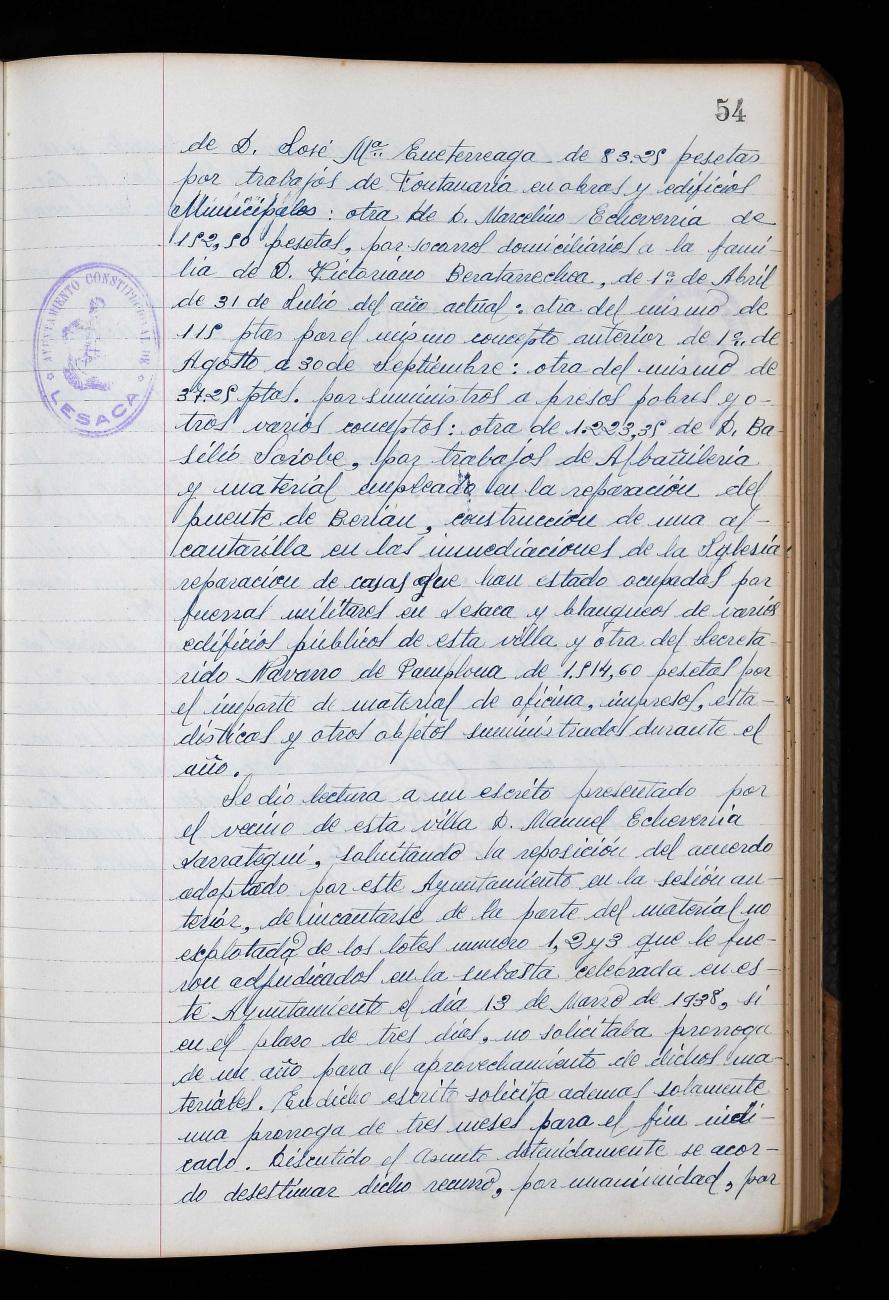 54
de D. José Mª. Eneterreaga de 83.25 pesetas
por trabajos de Fontanaria en obras y edificios
Municipales: otra de D. Marcelino Echeverria de
152,50 pesetas, por socorros domiciliarios a la fami-
lia de D. Victoriano Beratarrechea, de 1º. de Abril
de 31 de Julio del año actual: otra del mismo de
115 ptas por el mismo concepto anterior de 1º. de
Agosto a 30 de Septiembre: otra del mismo de
37.25 ptas. por suministros a presos pobres y o-
tros varios conceptos: otra de 1.223,35 de D. Ba-
silio Sorobe, por trabajos de Albañileria
y material empleado en la reparación del
puente de Berian, construcción de una al-
cantarilla en las inmediaciones de la Yglesia
reparacion de casas que han estado ocupadas por
fuerras militares en Lesaca y blanqueos de varios
edificios publicos de esta villa y otra del Secreta-
rido Navarro de Pamplona de 1.514,60 pesetas por
el importe de material de oficina, impresos, esta-
disticas y otros objetos suministrados durante el
año.
Se dio lectura a un escrito presentado por
el vecino de esta villa D. Manuel Echeverria
Larrategui, solicitando la reposición del acuerdo
adoptado por este Ayuntamiento en la sesión an-
terior, de incautarse de la parte del material no
explotado de los lotes numero 1, 2 y 3 que le fue-
ron adjudicados en la subasta celebrada en es-
te Ayuntamiento el dia 13 de Marzo de 1938, si
en el plazo de tres dias, no solicitaba prorroga
de un año para el aprovechamiento de dichos ma-
teriales. En dicho escrito solicita ademas solamente
una prorroga de tres meses para el fin indi-
cado. Discutido el asunto detenidamente se acor-
do desestimar dicho recurso, por unanimidad, por
AYUNTAMIENTO CONSTITUCIONAL DE
LESACA